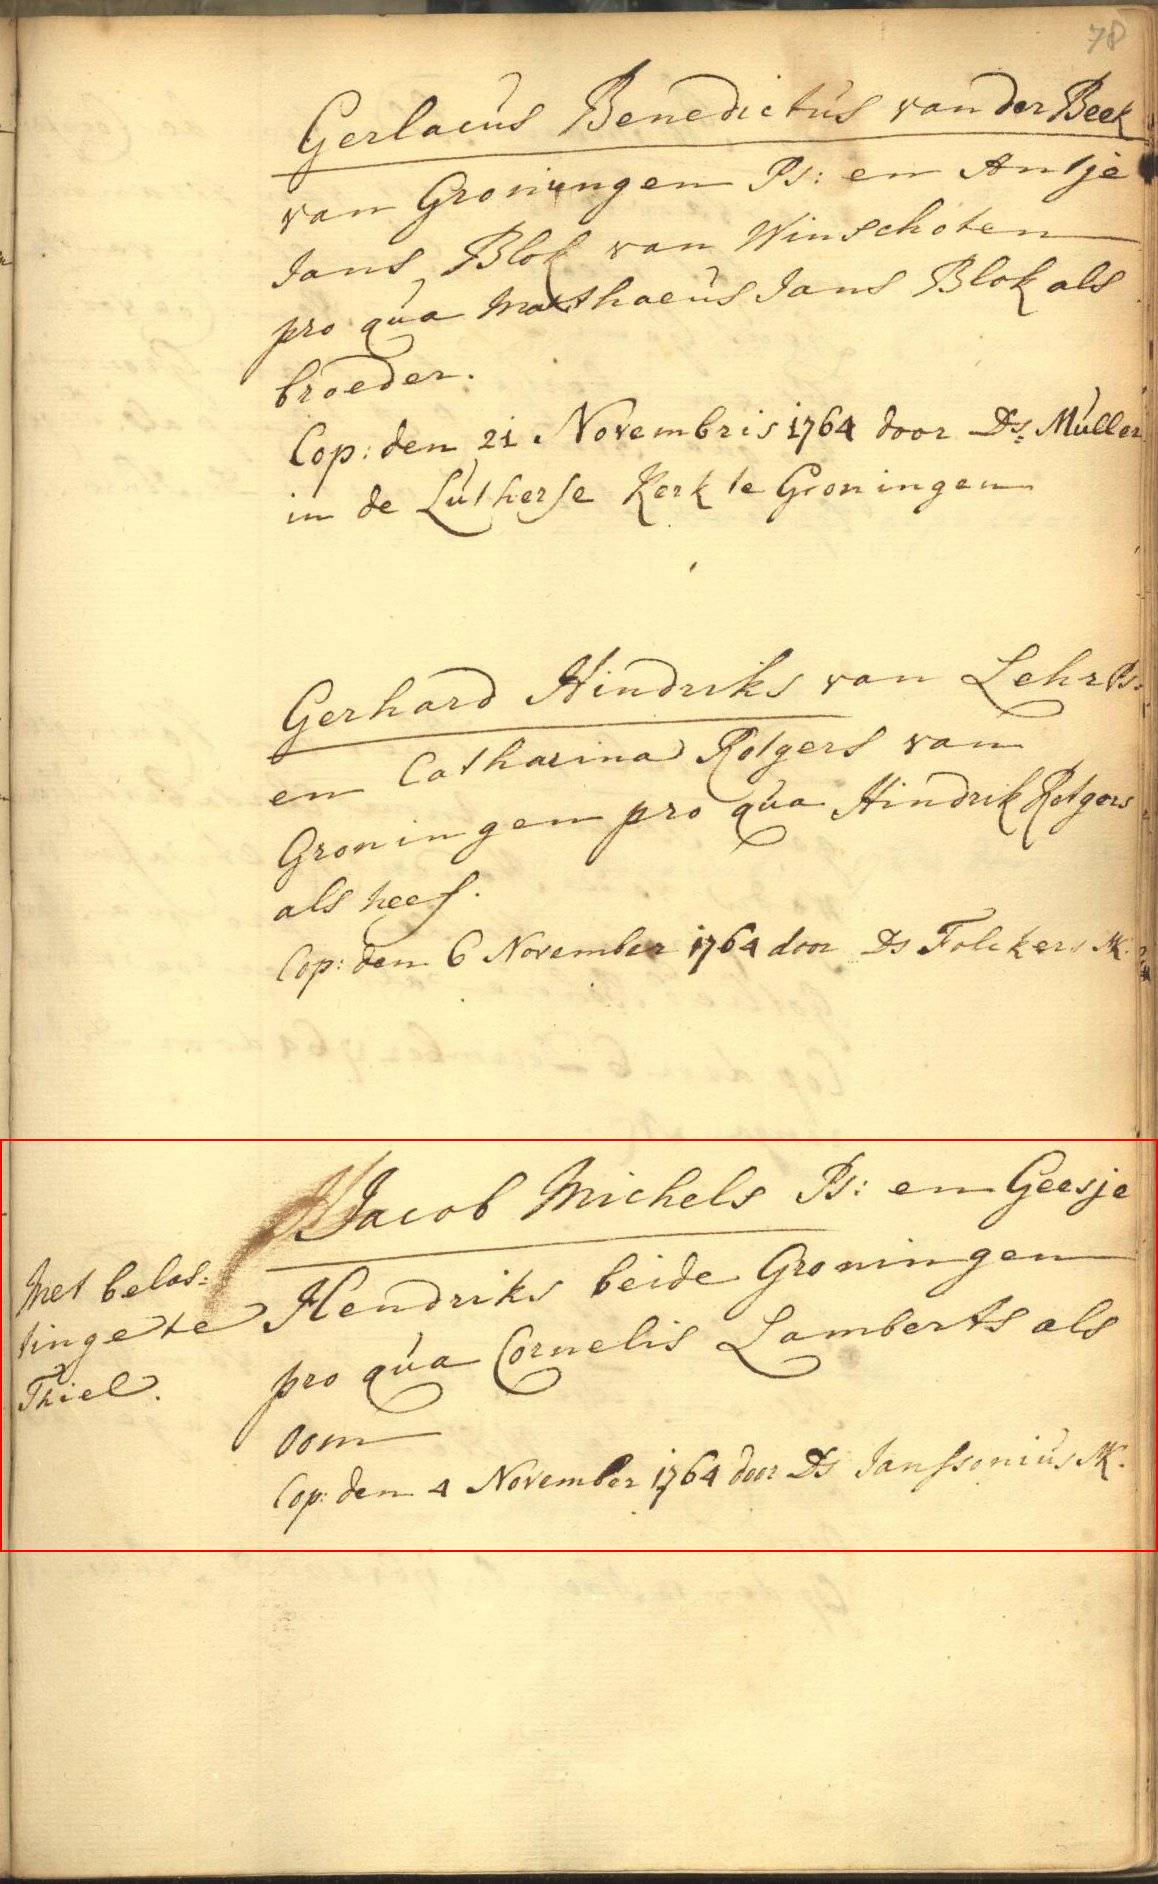 78
Gerlacus Benedictus van der Beek
van Groningen Ps: en Antje
Jans Blok van Winschoten
pro qua Matthaeus Jans Blok als
broeder.
Cop: den 21 Novembris 1764 door Ds. Muller
in de Lutherse Kerk te Groningen
Gerhard Hindriks van Lehr Ps:
en Catharina Rotgers van
Groningen pro qua Hindrik Rotgers
als neef.
Cop: den 6 November 1764 door Ds Folckers MK.
Jacob Michels Ps: en Geesje
Hendriks beide Groningen
pro qua Cornelis Lamberts als
oom
Cop: den 4 November 1764 door Ds Janssonius MK.
Met belas=
tinge te
Thiel.